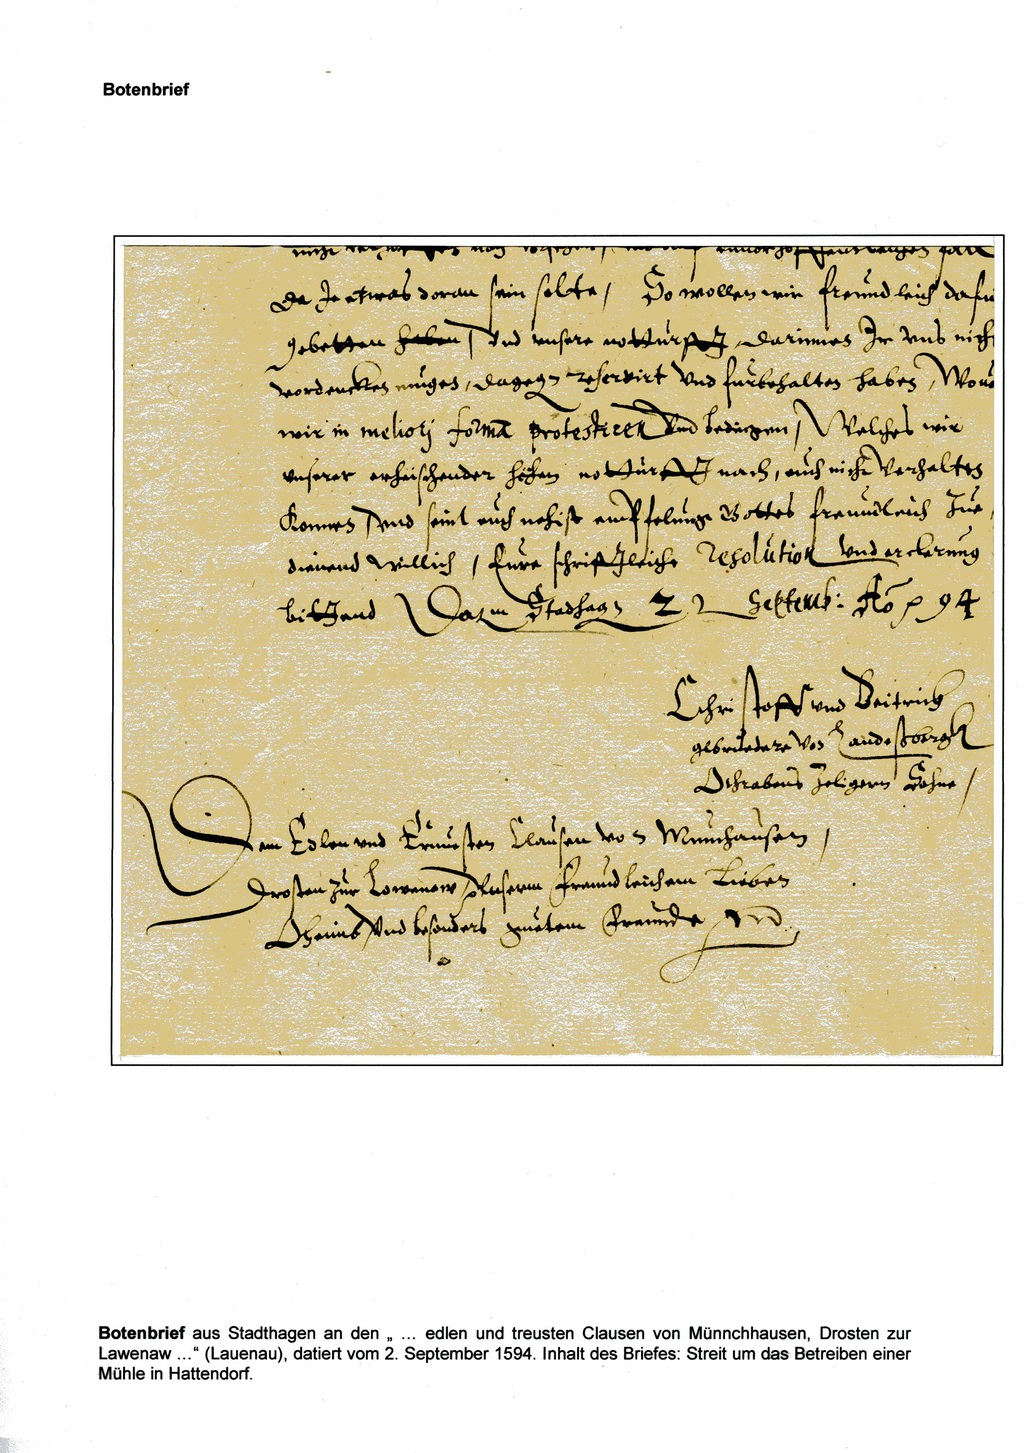 Botenbrief
Da Je etwas doran sein solte / So wollen wir freundleich dafur
gebetten haben / Vnd vnsere notturfft, Darinnes Ir Vns nicht
vordencken muges, Dagegen reservirt Vnd furbehalten haben, Wouon
wir in meliorj forma protestiren Vnd bedingen / Welches wir
vnserer erheischender hohen notturfft nach, euch nicht Verhalten
Konnen / Vnd seint euch nehist empfelung Gottes freundleich Zue
dienend willich / Eure schrifftleiche Resolution Vnd erclerung
bittend Datum Stadhagen 2 Septemb: Ao p 94
Christoff vnd Deitrich
gebruedere Von Landesbergk
Othrabens Zeligern Sohne /
Dem Edlen vnd Ernuesten Clausen von Munnchausen /
Drosten Zur Lowenow, Vnserm freundleichem Lieben
Oheimb Vnd besonders guetem Freunde
Botenbrief aus Stadthagen an den „ ... edlen und treusten Clausen von Münnchhausen, Drosten zur
Lawenaw ...“ (Lauenau), datiert vom 2. September 1594. Inhalt des Briefes: Streit um das Betreiben einer
Mühle in Hattendorf.